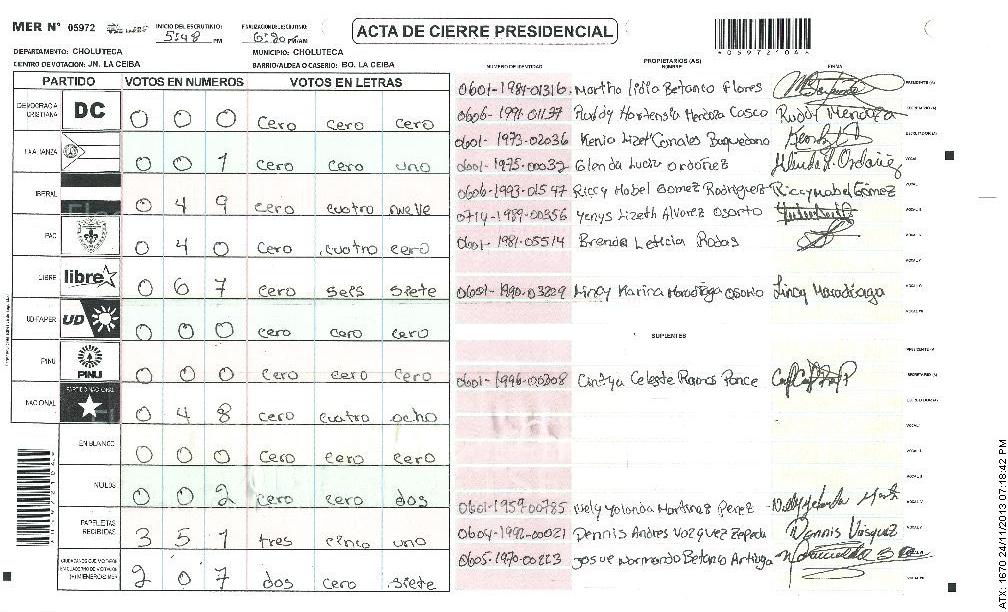 MER N° 05972 INICIO DEL ESCRUTINIO: 5:48 PM FINALIZACION DEL ESCRUTINIO: 6:20 PM/AM ACTA DE CIERRE PRESIDENCIAL
DEPARTAMENTO: CHOLUTECA MUNICIPIO: CHOLUTECA
CENTRO DE VOTACION: JN. LA CEIBA BARRIO/ALDEA O CASERIO: BO. LA CEIBA
PARTIDO VOTOS EN NUMEROS VOTOS EN LETRAS
DEMOCRACIA CRISTIANA DC 0 0 0 cero cero cero
0 0 1 cero cero uno
LIBERAL 0 4 9 cero cuatro nueve
PAC 0 4 0 cero cuatro cero
LIBRE libre 0 6 7 cero seis siete
UD-FAPER UD 0 0 0 cero cero cero
PINU PINU 0 0 0 cero cero cero
NACIONAL PARTIDO NACIONAL 0 4 8 cero cuatro ocho
EN BLANCO 0 0 0 cero cero cero
NULOS 0 0 2 cero cero dos
PAPELETAS RECIBIDAS 3 5 1 tres cinco uno
2 0 7 dos cero siete
PROPIETARIOS (AS)
NUMERO DE IDENTIDAD NOMBRE FIRMA
0601-1981-01316 Martha Lidia Betanco Flores PRESIDENTE (A)
0606-1991-01137 Ruddy Hortensia Mendoza Casco Ruddy Mendoza SECRETARIO (A)
0601-1973-02036 Kenia Lizet Canales Baquedano ESCRUTADOR (A)
0601-1975-00032 Glenda Lucia Ordoñez Glenda L. Ordoñez VOCAL I
0606-1993-01547 Riccy Mabel Gomez Rodriguez Riccy Mabel Gómez
0714-1989-00356 Yenys Lizeth Alvarez Osorto
0601-1981-05514 Brenda Leticia Rodas
0601-1990-03229 Lincy Karina Maradiaga Osorio Lincy Maradiaga
SUPLENTES
PRESIDENTE (A)
0601-1996-00308 Cintya Celeste Ramos Ponce SECRETARIO (A)
ESCRUTADOR (A)
0601-1959-00785 Nely Yolonda Martinez Perez
0604-1992-00021 Dennis Andres Vazquez Zepeda Dennis Vásquez
0605-1970-00223 Josue Normando Betanco Artiaga
ATX: 1670 24/11/2013 07:18:42 PM